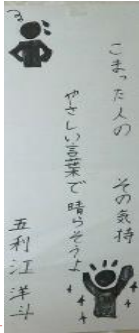 こまった人の その気持
やさしい言葉で 晴らそうよ
五利江 洋斗